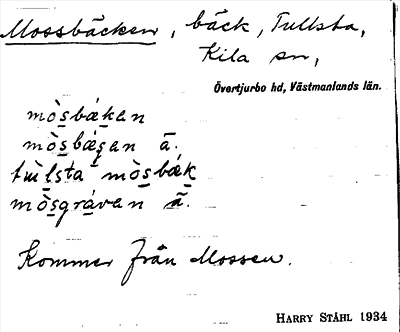 Mossbäcken, bäck, Tullsta,
Kila sn,
Övertjurbo hd, Västmanlands län.
mòsbä́ken
mòsbä́gen ā.
tùlsta mòsbä́k
mòsgráven ā.
Kommer från Mossen.
HARRY STÅHL 1934